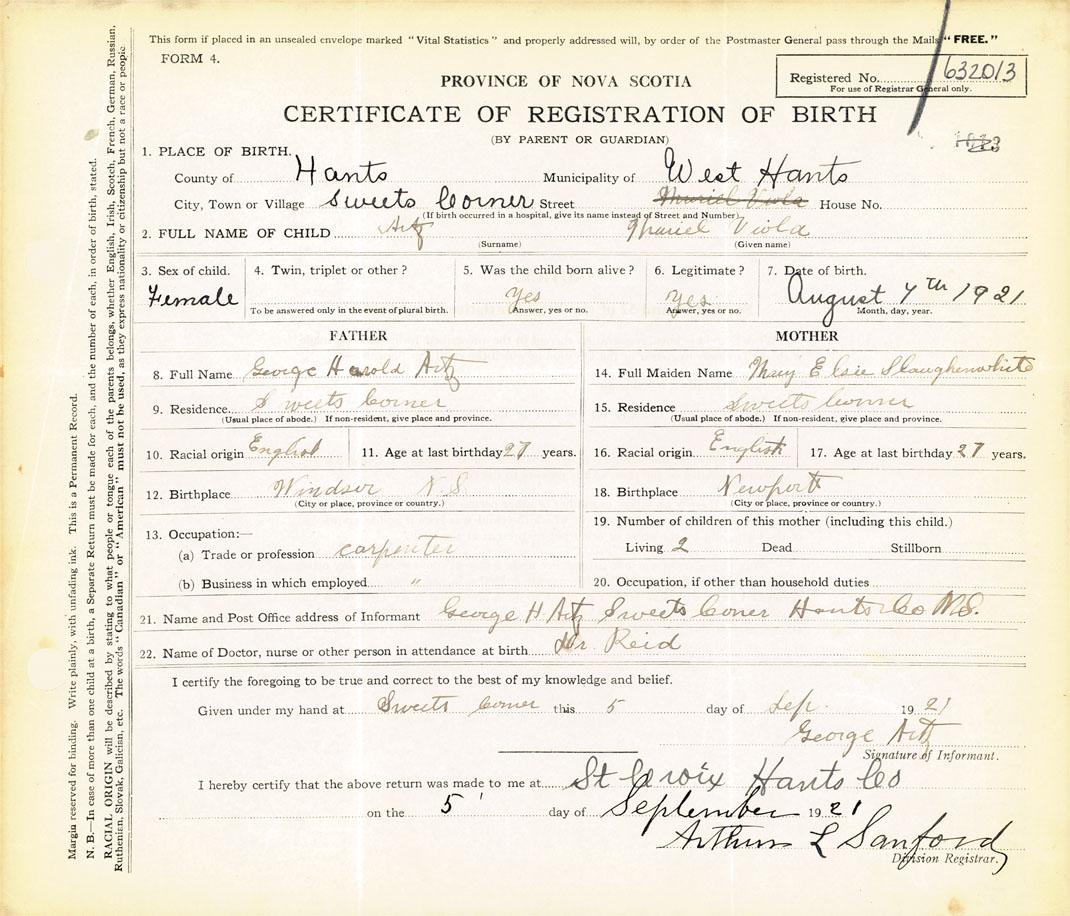 This form if placed in an unsealed envelope marked "Vital Statistics" and properly addressed will, by order of the Postmaster General pass through the Mails "FREE."
FORM 4.
PROVINCE OF NOVA SCOTIA
Registered No. 632013
For use of Registrar General only.
CERTIFICATE OF REGISTRATION OF BIRTH
(BY PARENT OR GUARDIAN)
1. PLACE OF BIRTH.
County of Hants Municipality of West Hants
City, Town or Village Sweets Corner Street Muriel Viola House No.
(If birth occurred in a hospital, give its name instead of Street and Number)
2. FULL NAME OF CHILD Artz Muriel Viola
(Surname) (Given name)
3. Sex of child. 4. Twin, triplet or other? 5. Was the child born alive? 6. Legitimate? 7. Date of birth.
Female Yes Yes August 7th 1921
To be answered only in the event of plural birth. Answer, yes or no. Answer, yes or no. Month, day, year.
FATHER MOTHER
8. Full Name George Harold Artz 14. Full Maiden Name Mary Elsie Slaughenwhite
9. Residence Sweets Corner 15. Residence Sweets Corner
(Usual place of abode.) If non-resident, give place and province. (Usual place of abode.) If non-resident, give place and province.
10. Racial origin English 11. Age at last birthday 27 years. 16. Racial origin English 17. Age at last birthday 27 years.
12. Birthplace Windsor N.S. 18. Birthplace Newport
(City or place, province or country.) (City or place, province or country.)
13. Occupation:— 19. Number of children of this mother (including this child.)
(a) Trade or profession carpenter Living 2 Dead Stillborn
(b) Business in which employed " 20. Occupation, if other than household duties
21. Name and Post Office address of Informant George H Artz Sweets Coner Hants Co N.S.
22. Name of Doctor, nurse or other person in attendance at birth Dr. Reid
I certify the foregoing to be true and correct to the best of my knowledge and belief.
Given under my hand at Sweets Corner this 5 day of Sep. 1921
George Artz
Signature of Informant.
I hereby certify that the above return was made to me at St Croix Hants Co
on the 5 day of September 1921
Arthur L Sanford
Division Registrar.
Margin reserved for binding. Write plainly, with unfading ink. This is a Permanent Record.
N. B.—In case of more than one child at a birth, a Separate Return must be made for each, and the number of each, in order of birth, stated.
RACIAL ORIGIN will be described by stating to what people or tongue each of the parents belongs, whether English, Irish, Scotch, French, German, Russian,
Ruthenian, Slovak, Galician, etc. The words "Canadian" or "American" must not be used, as they express nationality or citizenship but not a race or people